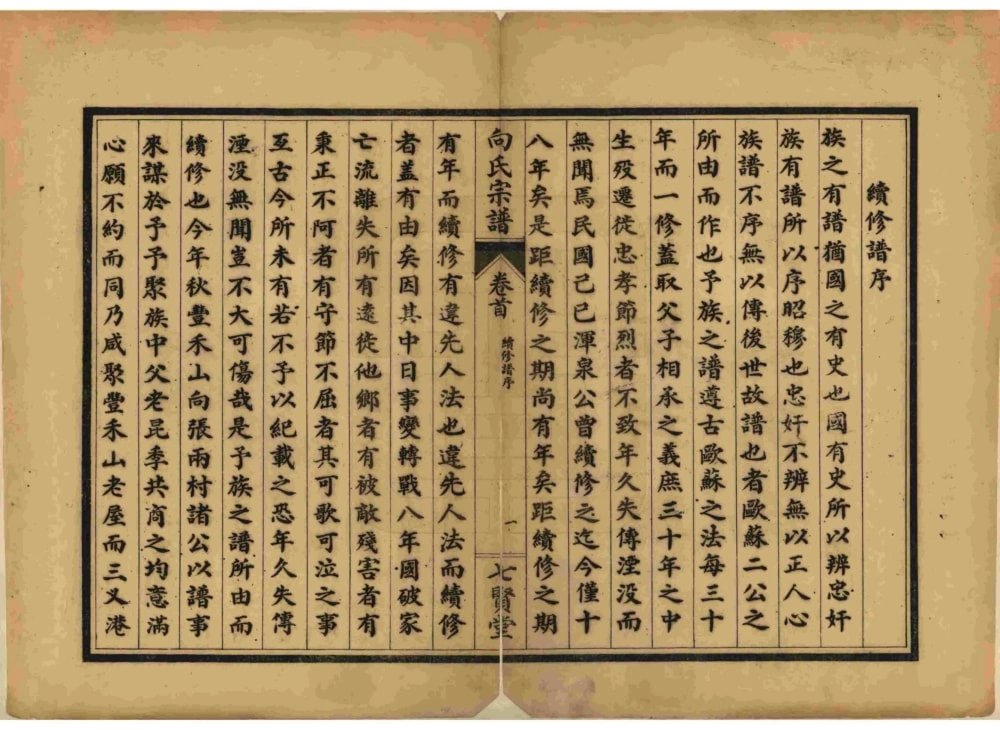 續修譜序
族之有譜猶國之有史也國有史所以辨忠奸
族有譜所以序昭穆也忠奸不辨無以正人心
族譜不序無以傳後世故譜也者歐蘇二公之
所由而作也予族之譜遵古歐蘇之法每三十
年而一修蓋取父子相承之義庶三十年之中
生歿遷徙忠孝節烈者不致年久失傳湮没而
無聞焉民國己巳渾泉公曾續修之迄今僅十
八年矣是距續修之期尚有年矣距續修之期
向氏宗譜
卷首
續修譜序
一
七賢堂
有年而續修有違先人法也違先人法而續修
者蓋有由矣因其中日事變轉戰八年國破家
亡流離失所有遠徙他鄉者有被敵殘害者有
秉正不阿者有守節不屈者其可歌可泣之事
亙古今所未有若不予以紀載之恐年久失傳
湮没無聞豈不大可傷哉是予族之譜所由而
續修也今年秋豐禾山向張兩村諸公以譜事
來謀於予予聚族中父老昆季共商之均意滿
心願不約而同乃咸聚豐禾山老屋而三义港